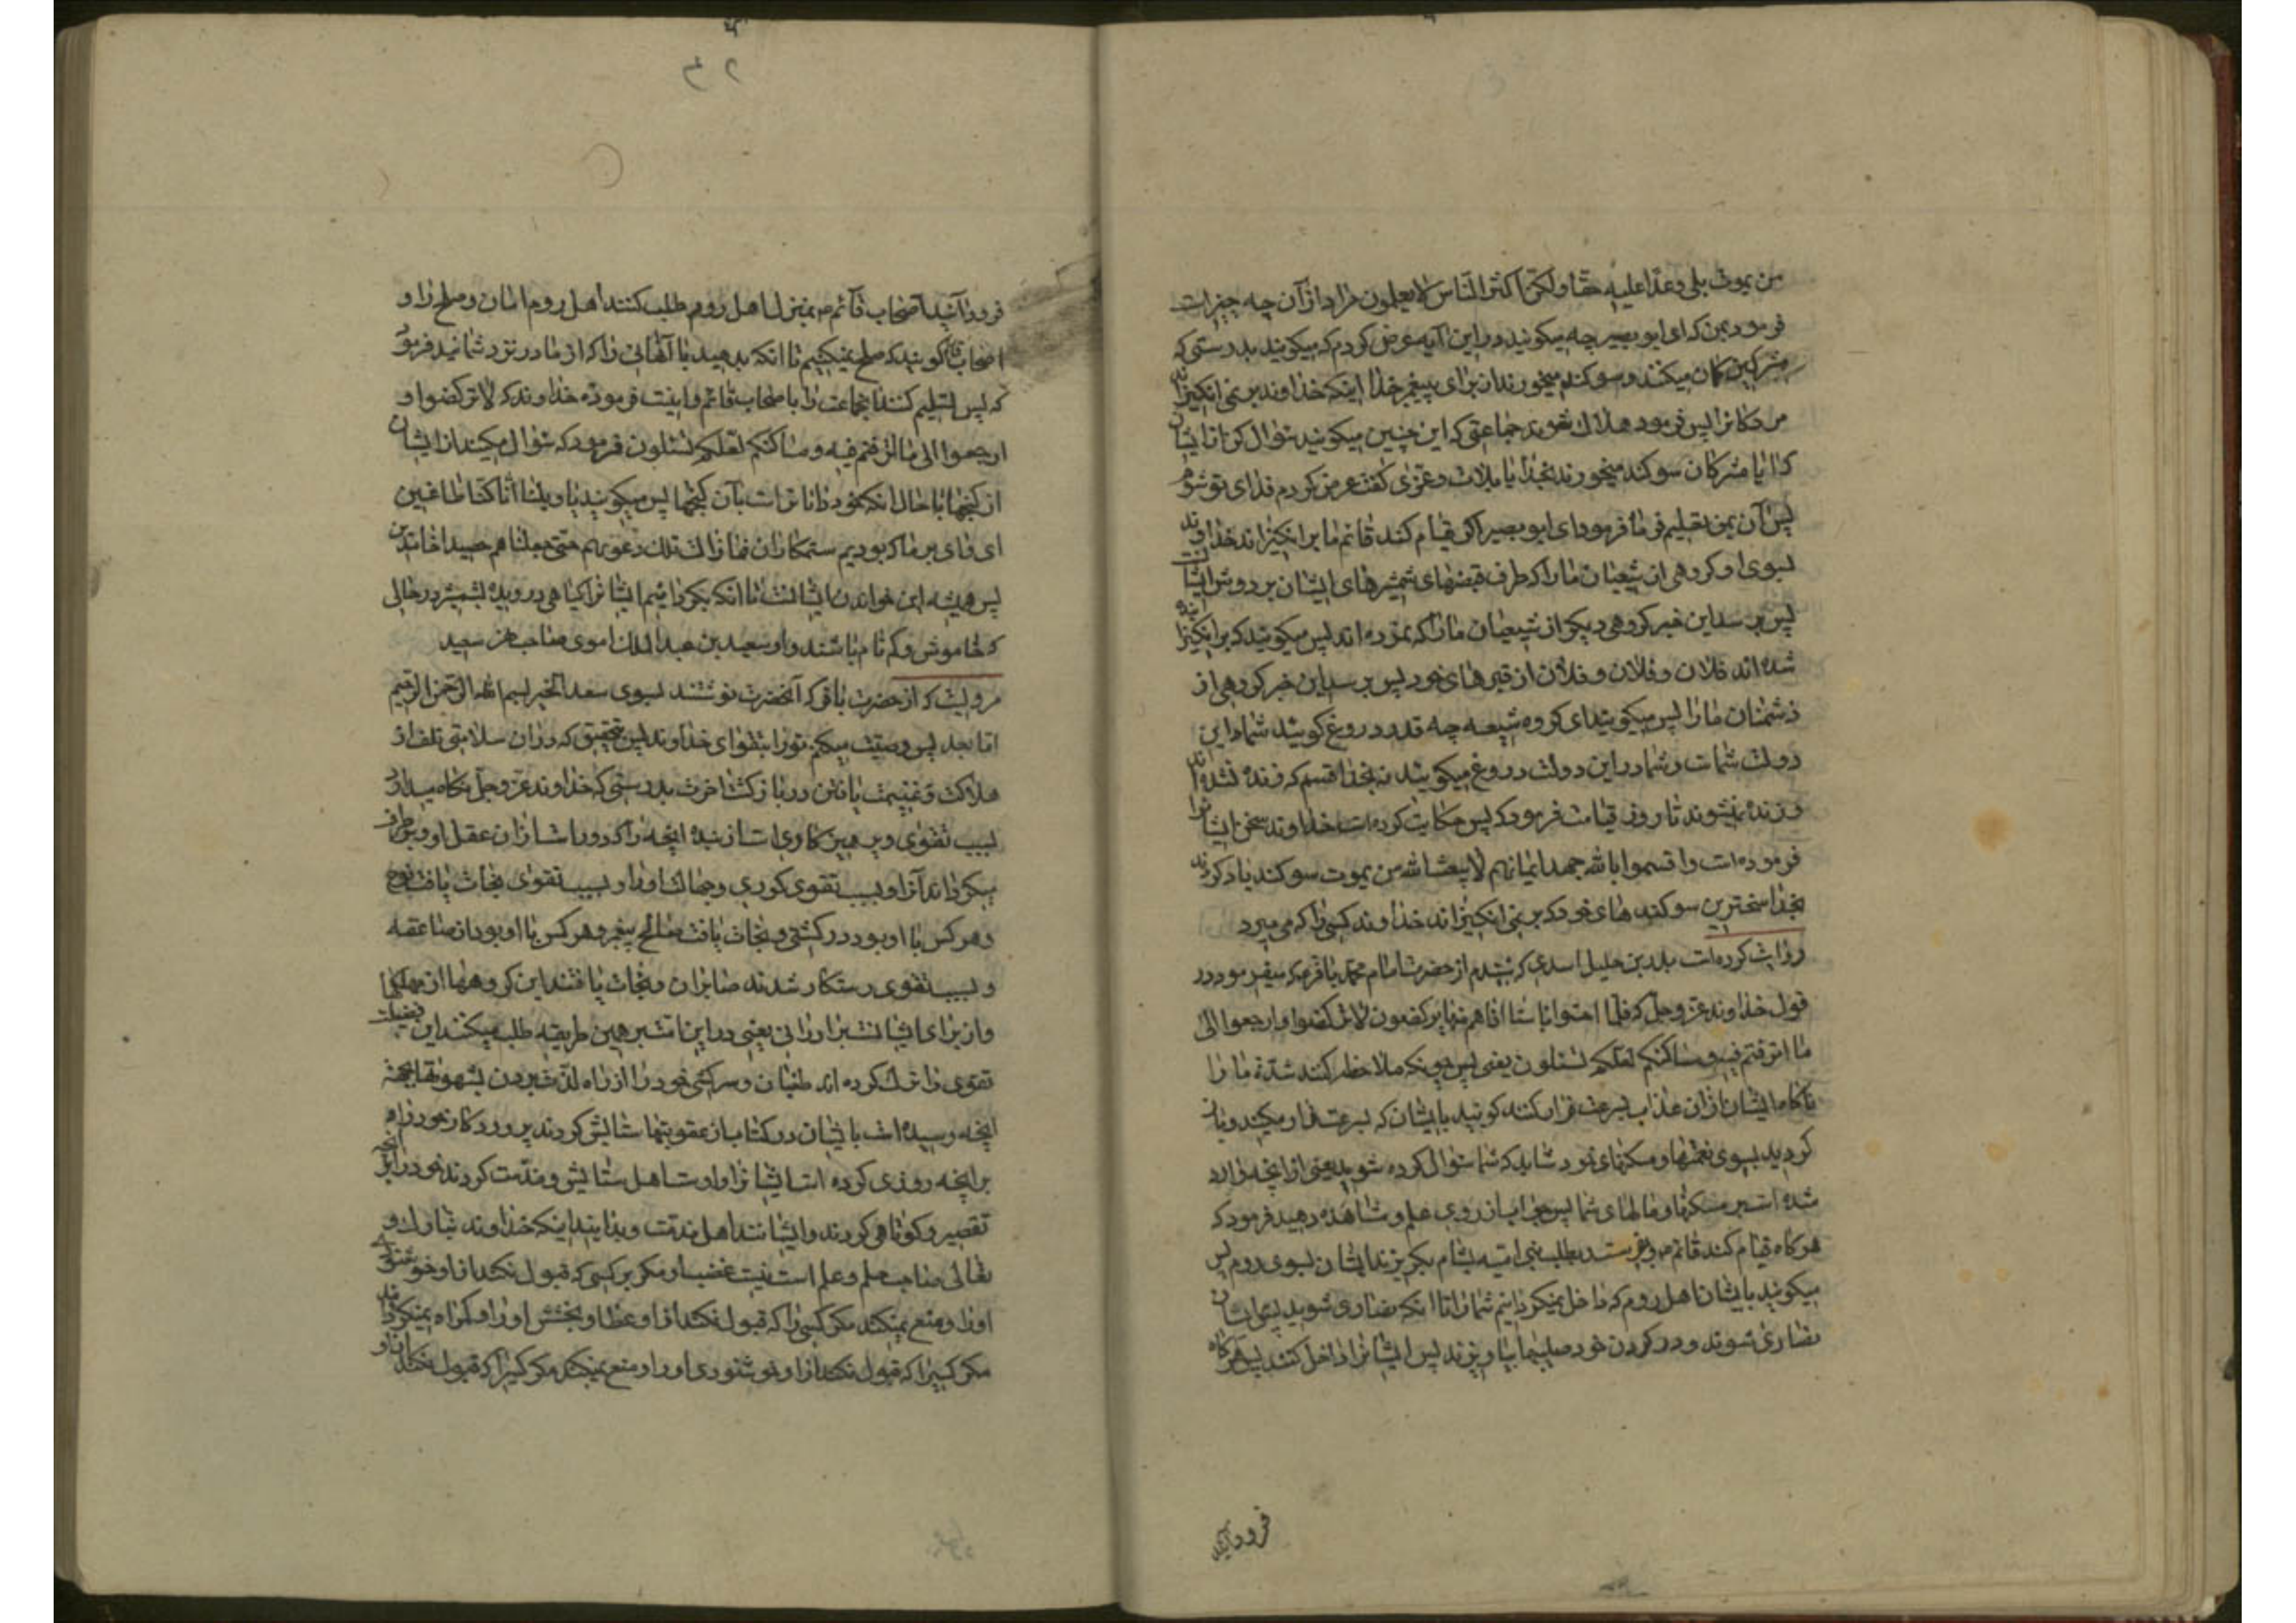 من یموت بلی وعدا علیه حقا ولکن اکثر الناس لا یعلمون مراد از آن چه چیز است
فرمود بمن که ای ابو بصیر چه میکویند در این آیه عرض کردم که میکویند بدرستی که
مشرکین کمان میکنند و سوکند میخورند از برای پیغمبر خدا اینکه خداوند بر نمی انکیزاند
مردکانرا پس فرمود هلاک شوند جماعتی که این چنین میکویند سؤال کن از ایشان
که ایا مشرکان سوکند میخورند بخدا یا بلات و عزی کفت عرض کردم فدای تو شوم
پس آن بمن تعلیم فرما فرمود ای ابو بصیر اکر قیام کند قائم ما بر انکیزاند خداوند
بسوی او کروهی از شیعیان ما را که طرف قبضهای شمشیرهای ایشان بر دوش ایشانست
پس برسد این خبر کروهی دیکر از شیعیان ما را که نمرده اند پس میکویند که بر انکیزانده
شده اند فلان و فلان و فلان از قبرهای خود پس برسد این خبر کروهی از
دشمنان ما را پس میکویند ای کروه شیعه چه قدر دروغ کویید شما این
دولت شماست و شما در این دولت دروغ میکویید نه بخدا قسم که زنده نشده اند
و زنده نمیشوند تا روز قیامت فرمود که پس حکایت کرده است خداوند سخن ایشانرا
فرموده است و اقسموا بالله جهد ایمانهم لا یبعث الله من یموت سوکند یاد کردند
بخدا سختترین سوکند های خود که بر نمی انکیزاند خداوند کسی را که می میرد
روایت کرده است بدر بن خلیل اسدی که شنیدم از حضرت امام محمد باقر ع که میفرمود در
قول خداوند عز و جل که فلما احسوا باسنا اذا هم منها یرکضون لا ترکضوا و ارجعوا الی
ما اترفتم فیه و مساکنکم لعلکم تسئلون یعنی پس چونکه ملاحظه کنند شدة ما را
ناکاه ایشان از آن عذاب بسرعت فرار کنند کویید بایشان که بسرعت فرار میکنید و باز
کردید بسوی نعمتها و مسکنهای خود شاید که شما سؤال کرده شوید یعنی از آنچه وارد
شده است بر مسکنها و مالهای شما پس جواب از روی علم و مشاهده دهید فرمود که
هرکاه قیام کند قائم ع و بفرستد بطلب بنی امیه بشام بکریزند ایشان بسوی روم پس
میکویند بایشان اهل روم که داخل نمیکردانیم شما را تا انکه نصاری شوید پس ایشان
نصاری شوند و در کردن خود صلیبها بیاویزند پس ایشانرا داخل کنند پس هرکاه
فرود آیند
۲۴
فرود آیند اصحاب قائم ع بمنزل اهل روم طلب کنند اهل روم امان و صلح را و
اصحاب قائم کویند که صلح نمیکنیم تا انکه بدهید بما آنهائی را که از ما در نزد شمایند فرمود
که پس تسلیم کنند انجماعت را باصحاب قائم و اینست فرموده خداوند که لا ترکضوا و
ارجعوا الی ما اترفتم فیه و مساکنکم لعلکم تسئلون فرمود که سؤال میکنند از ایشان
از کنجها با حال انکه خود دانا تر است بآن کنجها پس میکویند یا ویلنا انا کنا ظالمین
ای وای بر ما که بودیم ستمکاران فما زالت تلک دعویهم حتی جعلناهم حصیدا خامدین
پس همیشه این خواندن ایشانست تا انکه بکردانیم ایشانرا کیاهی درویده بشمشیر در حالی
که خاموش و کم نام باشند و او سعید بن عبد الملک اموی صاحب نهر سعید
مرویست که از حضرت باقر که آنحضرت نوشتند بسوی سعد الخیر بسم الله الرحمن الرحیم
اما بعد پس وصیت میکنم تو را بتقوای خداوند پس بتحقیق که در آن سلامتی تلف از
هلاکت و غنیمت یافتن در بازکشت اخرت بدرستی که خداوند عز و جل نکاه میدارد
بسبب تقوی و پرهیزکاری است از بنده انچه را که دور است از آن عقل او و بر طرف
میکرداند از او بسبب تقوی کوری و جهالت او را و بسبب تقوی نجات یافت نوح
و هر کس با او بود در کشتی و نجات یافت صالح پیغمبر و هر کس با او بود از صاعقه
و بسبب تقوی رستکار شدند صابران و نجات یافتند این کروهها از مهلکها
و از برای ایشانست برادرانی یعنی در این ناس بر همین طریقه طلب میکنند این فضیلت
تقوی را ترک کرده اند طغیان و سرکشی خود را از راه لذت بردن بشهوتها بجهة
انچه رسیده است بایشان در کتاب از عقوبتها ستایش کردند پروردکار خود را
بر انچه روزی کرده است ایشانرا و اوست اهل ستایش و مذمت کردند خود را بر انچه
تقصیر و کوتاهی کردند و ایشانند اهل مذمت و بدانید اینکه خداوند تبارک و
تعالی صاحب حلم و علم است نیست غضب او مکر بر کسی که قبول نکند از او خوشنودی
او را و منع نمیکند مکر کسی را که قبول نکند از او عطا و بخشش او را و کمراه نمیکرداند
مکر کسیرا که قبول نکند از او خوشنودی او را و منع نمیکند مکر کسیرا که قبول نکند از او